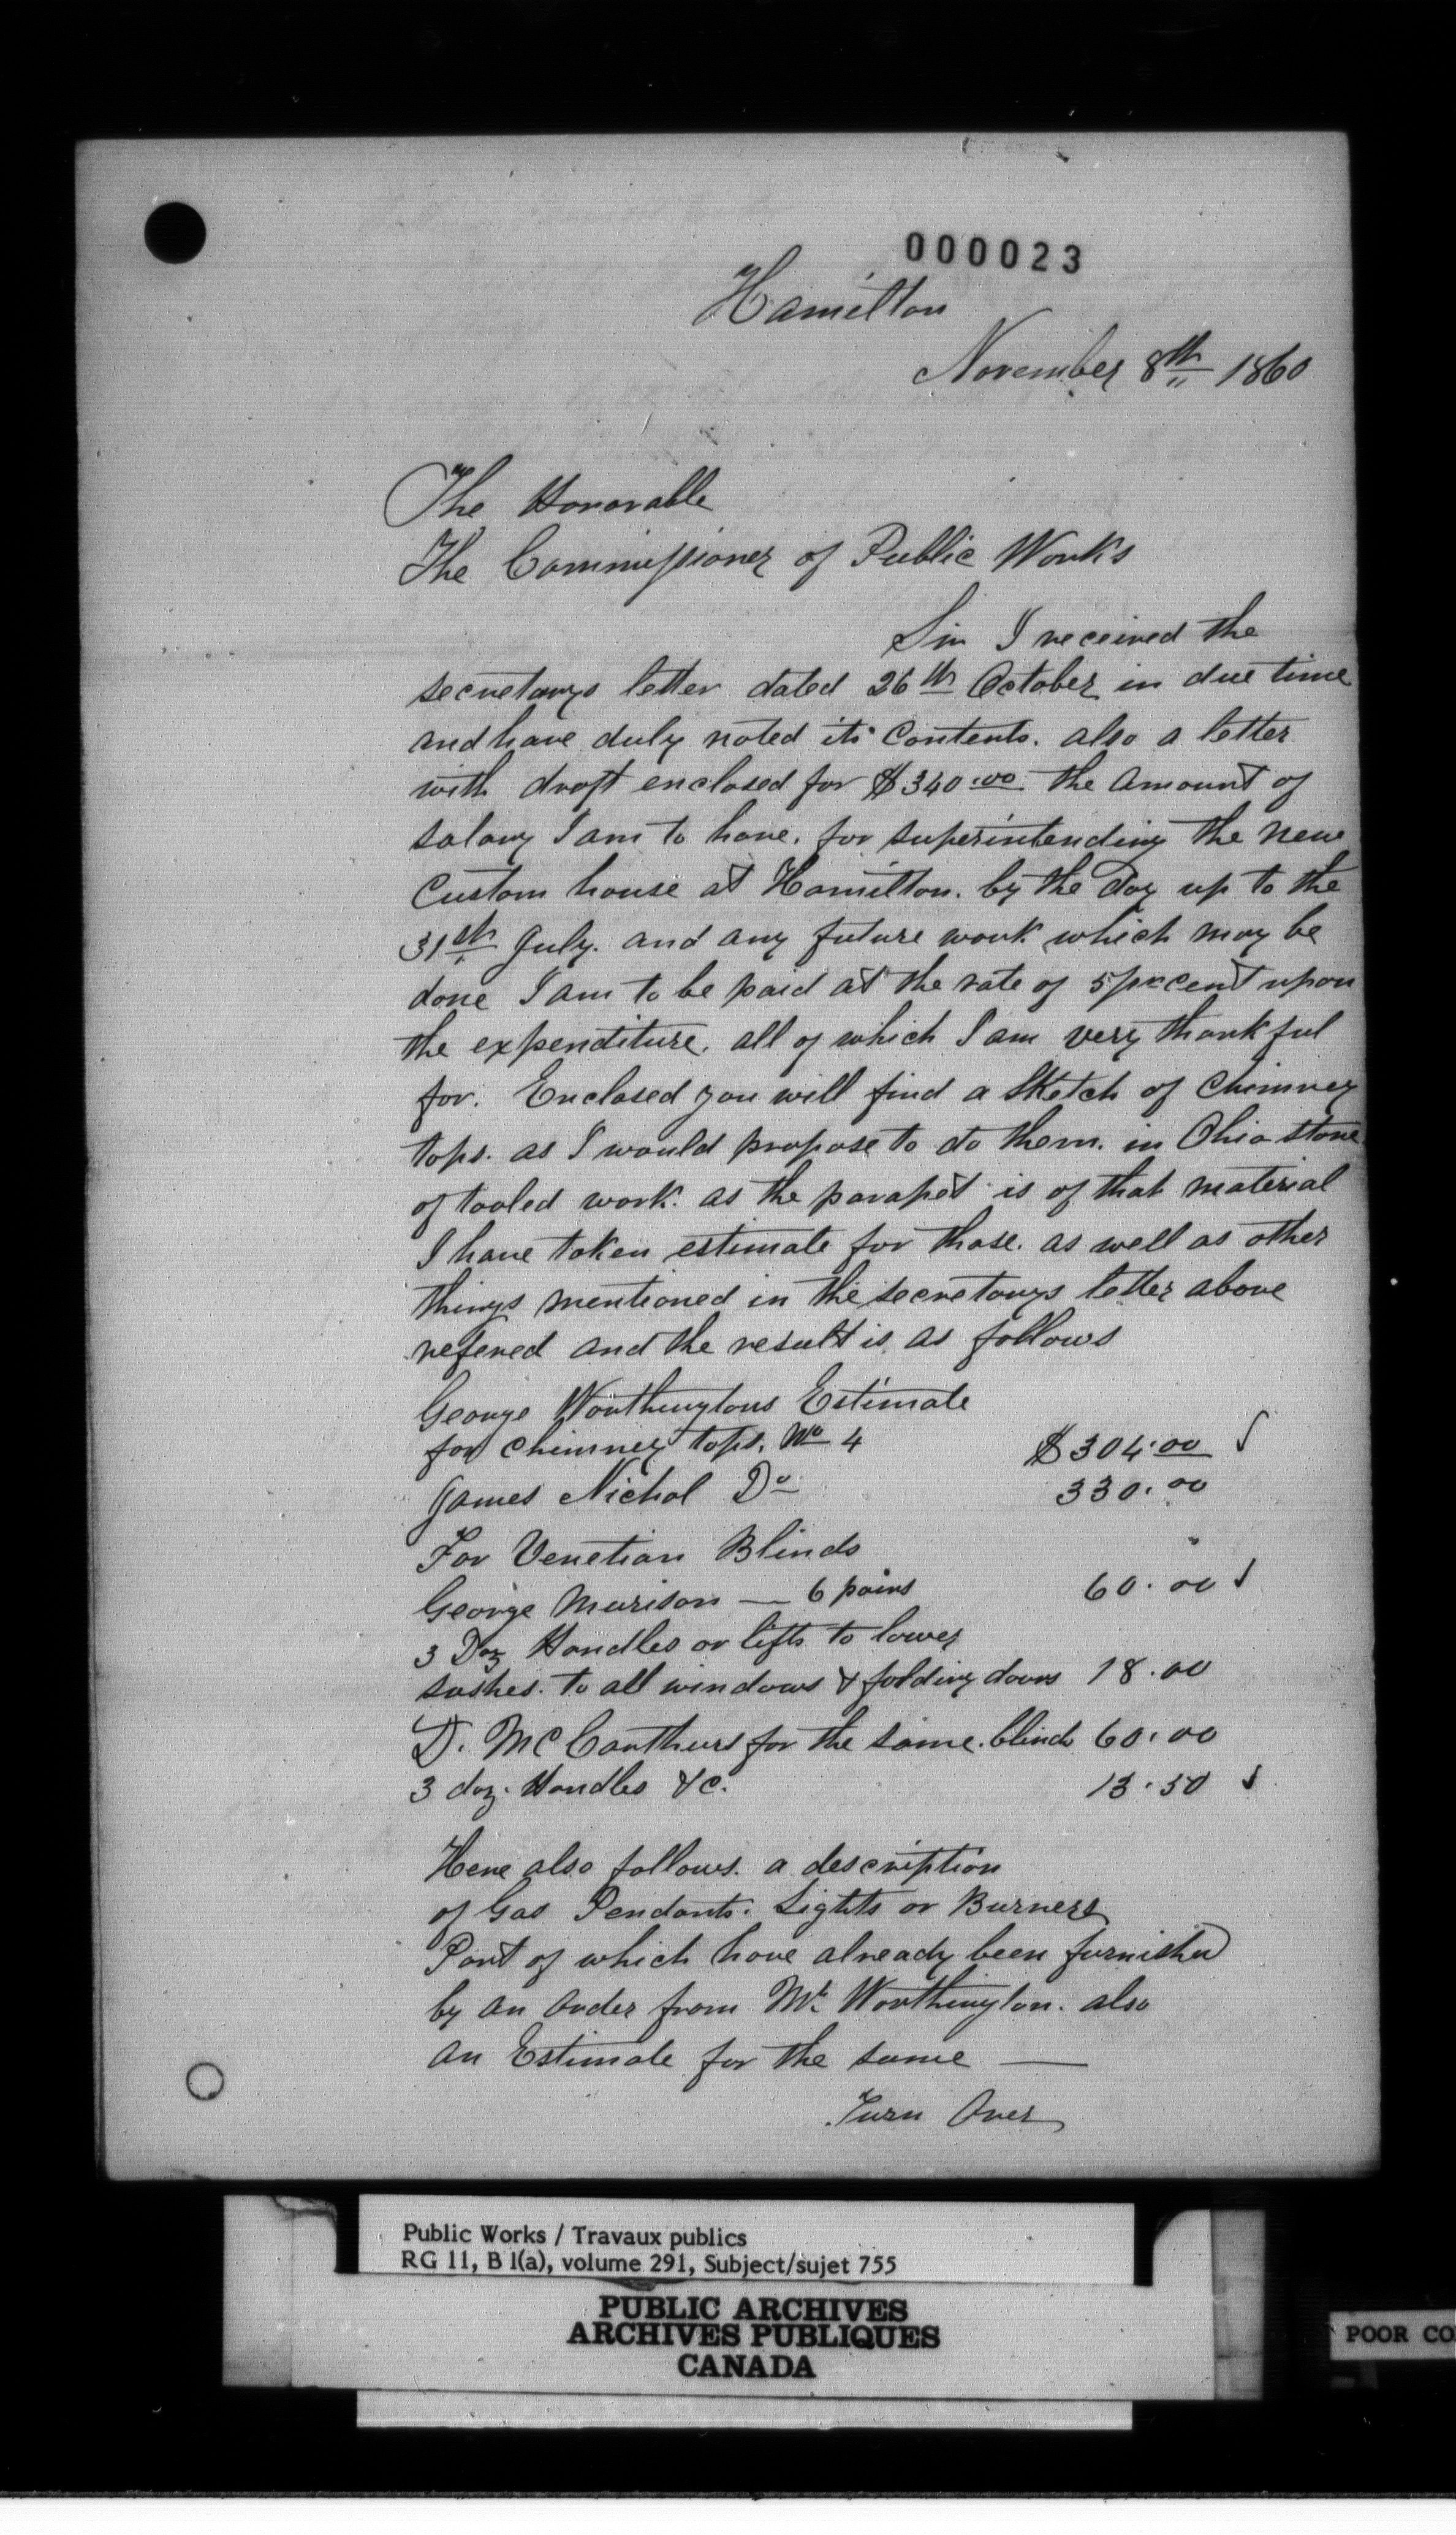 000023
Hamilton
November 8th 1860
The Honorable
The Commissioner of Public Works
Sir I received the
secretarys letter dated 26th October in due time
and have duly noted its Contents. also a letter
with draft enclosed for $340.00 the Amount of
salary I am to have. for superintending the new
Custom house at Hamilton. by the Day up to the
31st July. and any future work which may be
done I am to be paid at the rate of 5 pr cent upon
the expenditure. all of which I am very thankful
for. Enclosed you will find a Sketch of Chimney
tops. as I would propose to do them. in Ohio stone
of tooled work. as the parapet is of that material
I have taken estimate for those. as well as other
things mentioned in the secretarys letter above
refered and the result is as follows
George Worthingtons Estimate
for chimney tops. No 4 $304.00 ✓
James Nichol Do 330.00
For Venetian Blinds
George Murison — 6 pairs 60.00 ✓
3 Doz Handles or lifts to lower
sashes. to all windows & folding doors 18.00
D. McCarthurs for the same. blinds 60.00
3 doz. Handles &c. 13.50 ✓
Here also follows. a description
of Gas Pendants. Lights or Burners
Part of which have already been furnished
by an order from Mr. Worthington. also
an Estimate for the same —
Turn Over
Public Works / Travaux publics
RG 11, B 1(a), volume 291, Subject/sujet 755
PUBLIC ARCHIVES
ARCHIVES PUBLIQUES
CANADA
POOR CO